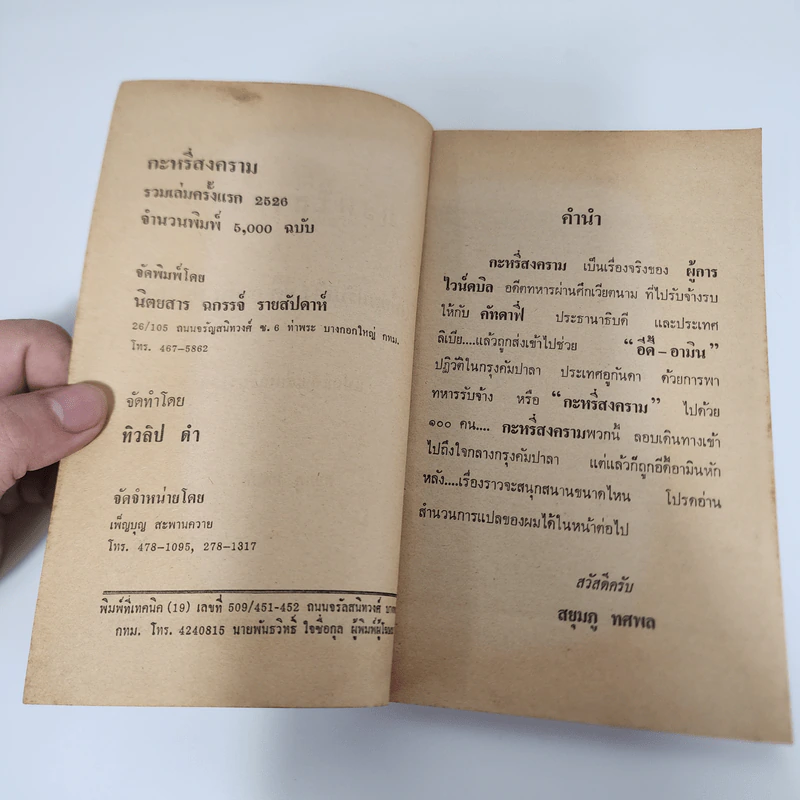 กะหรี่สงคราม
รวมเล่มครั้งแรก 2526
จำนวนพิมพ์ 5,000 ฉบับ
จัดพิมพ์โดย
นิตยสาร ฉกรรจ์ รายสัปดาห์
26/105 ถนนจรัญสนิทวงศ์ ซ. 6 ท่าพระ บางกอกใหญ่ กทม.
โทร. 467-5862
จัดทำโดย
ทิวลิป ดำ
จัดจำหน่ายโดย
เพ็ญบุญ สะพานควาย
โทร. 478-1095, 278-1317
พิมพ์ที่เทคนิค (19) เลขที่ 509/451-452 ถนนจรัลสนิทวงศ์
กทม. โทร. 4240815 นายพันธวิทธิ์ ใจซื่อกุล ผู้พิมพ์ผู้โฆษณา
คำนำ
กะหรี่สงคราม เป็นเรื่องจริงของ ผู้การ
ไวน์ดบิล อดีตทหารผ่านศึกเวียตนาม ที่ไปรับจ้างรบ
ให้กับ คัทดาฟี่ ประธานาธิบดี และประเทศ
ลิเบีย....แล้วถูกส่งเข้าไปช่วย “อีดี้-อามิน”
ปฏิวัติในกรุงคัมปาลา ประเทศอูกันดา ด้วยการพา
ทหารรับจ้าง หรือ “กะหรี่สงคราม” ไปด้วย
๑๐๐ คน.... กะหรี่สงครามพวกนี้ ลอบเดินทางเข้า
ไปถึงใจกลางกรุงคัมปาลา แต่แล้วก็ถูกอีดี้อามินหัก
หลัง....เรื่องราวจะสนุกสนานขนาดไหน โปรดอ่าน
สำนวนการแปลของผมได้ในหน้าต่อไป
สวัสดีครับ
สยุมภู ทศพล